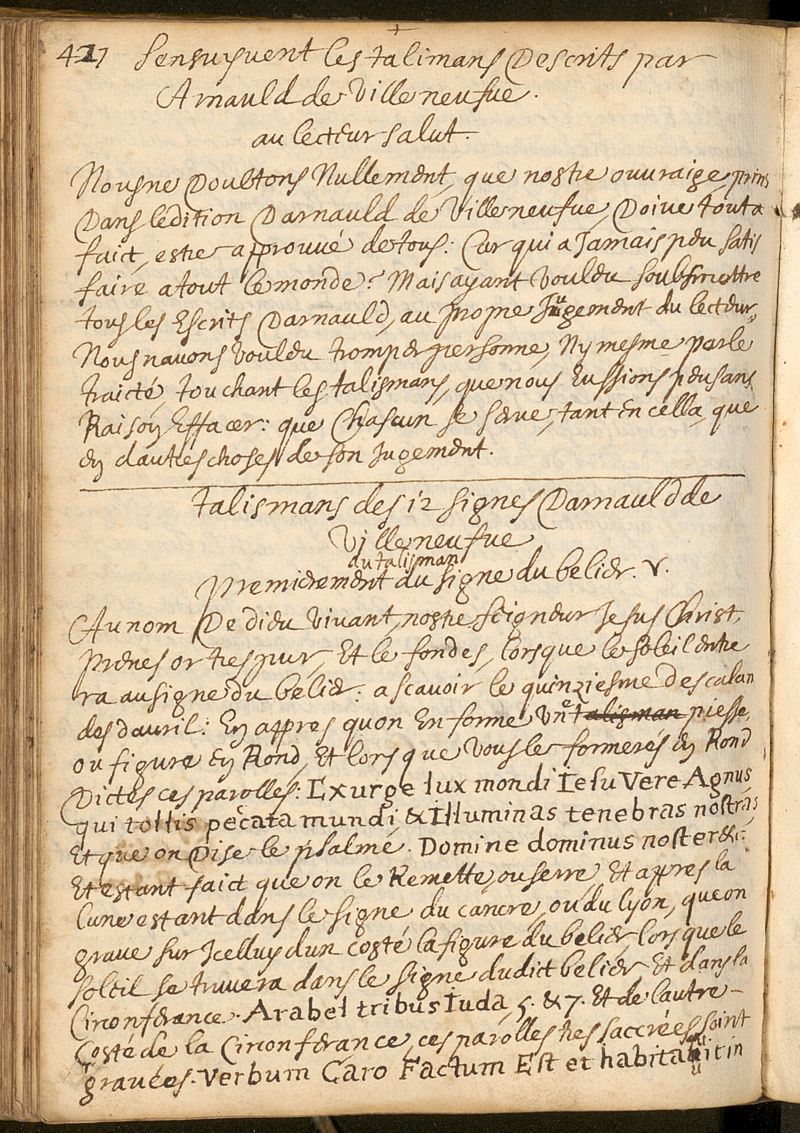 427 Sensuyvent les talimans Descrits par
Arnauld de Ville neufue.
au lecteur salut.
Nous ne Doubtons Nullement, que nostre ouvraige prins
Dans ledition Darnauld de Ville neufue, Doive tout a
faict, estre approuvé de tous: Car qui a Jamais peu satis
faire a tout le monde? Mais ayant voulou soubsmettre
tous les Escrits Darnauld, au propre Jugement du lecteur,
Nous navons voulou tromper personne, Ny mesme par le
traicté, touchant les talismans, que nous Eussions peu sans
Raison Effacer: que Chascun se serve, tant En cella, que
En dautres choses de son Jugement.
talismans des 12 signes Darnauld de
Ville neufue
du talisman
Premierement du signe du belier. ♈.
Au nom De dieu Vivant, nostre seigneur Jesus Christ,
Prenes or tres pur, Et le fondes, lorsque le soleil entre
ra au signe du belier: a scavoir le quinziesme des calan
des dauril: En appres quon En forme Vne talisman piesse,
ou figure En Rond, Et lors que Vous le formerés En Rond
Dictes ces parolles: Exurge lux mondi Iesu Vere Agnus
qui tollis peccata mundi & Illuminas tenebras nostras
Et que on Dise le psalme. Domine dominus noster &c:
Et estant faict que on le Remette, ou serre Et appres la
lune estant dans le signe du cancre, ou du lyon, que on
grave sur Jcelluy dun costé la figure du belier lors que le
soleil se truvera dans le signe dudict belier Et dans la
Circonferance. Arabel tribus Iuda, 5. & 7. Et de lautre
Costé de la Circonferance, ces parolles tres saccrées soint
gravées. Verbum Caro Factum Est et habitavit in